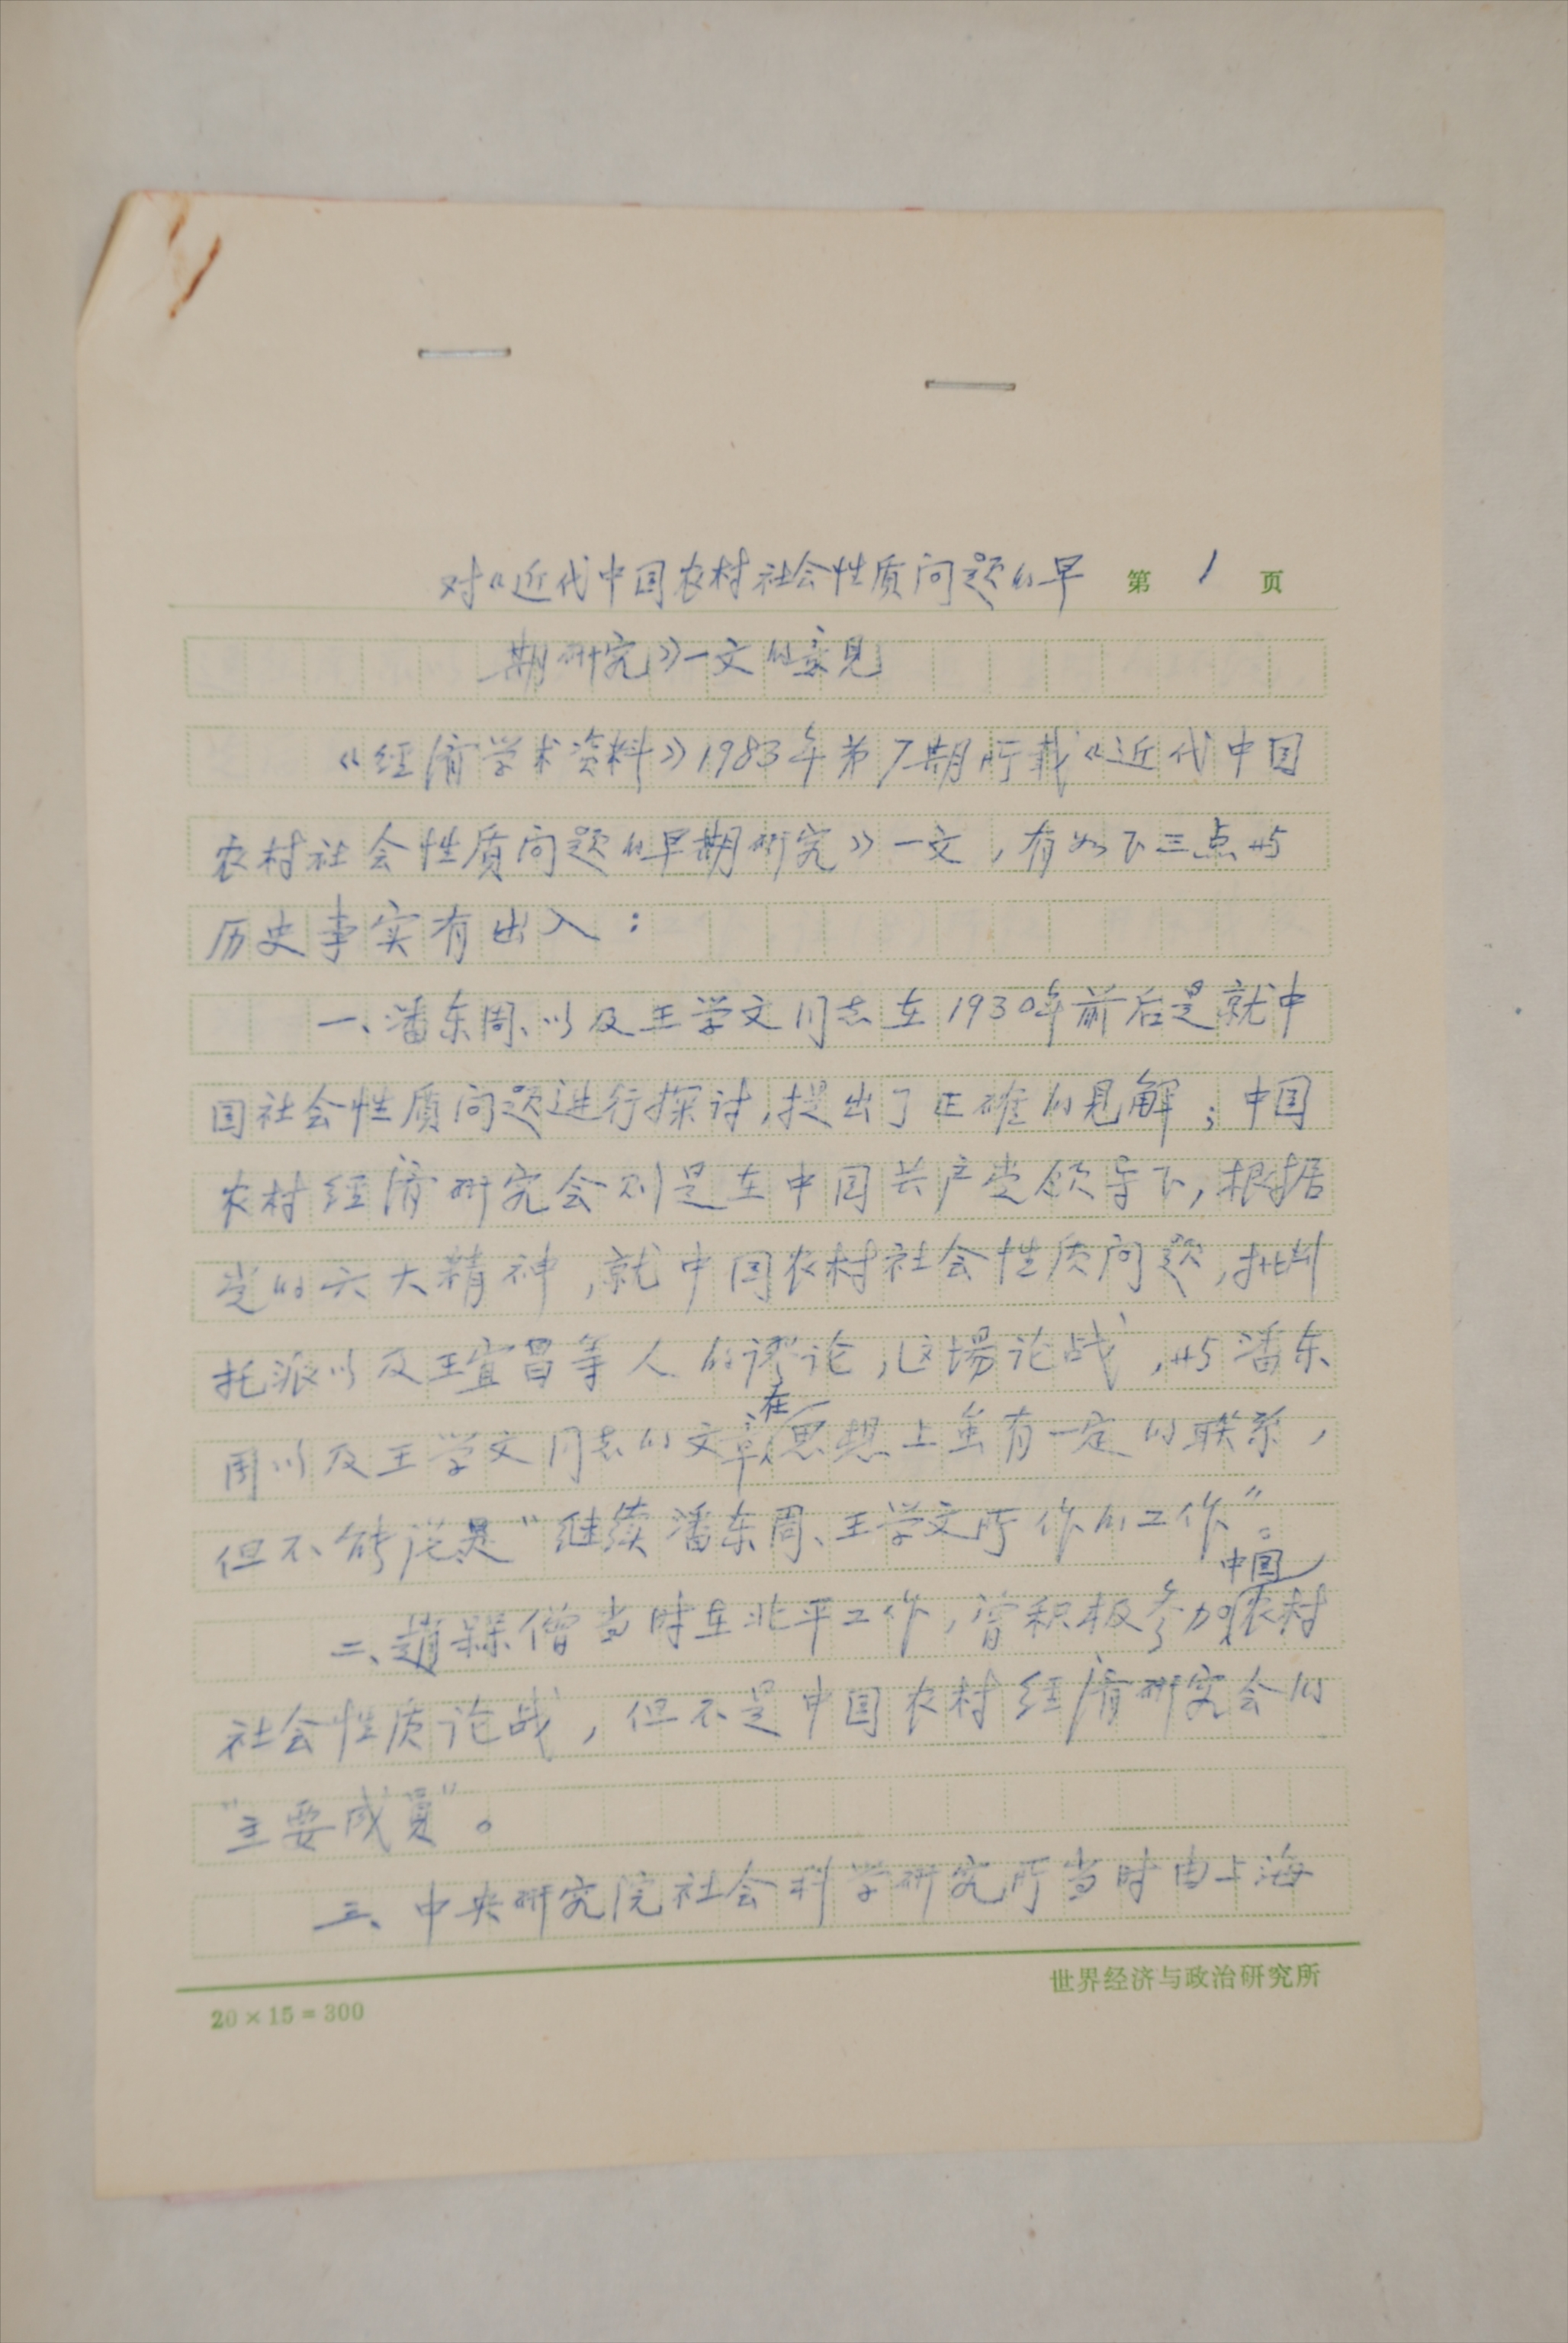 对《近代中国农村社会性质问题的早 第 1 页
期研究》一文的意见
《经济学术资料》1983年第7期所载《近代中国
农村社会性质问题的早期研究》一文，有如下三点与
历史事实有出入：
一、潘东周、以及王学文同志在1930年前后是就中
国社会性质问题进行探讨，提出了正确的见解；中国
农村经济研究会则是在中国共产党领导下，根据
党的六大精神，就中国农村社会性质问题，批判
托派以及王宜昌等人的谬论，这场论战，与潘东
周以及王学文同志的文章在思想上虽有一定的联系，
但不能说是“继续潘东周、王学文所作的工作”。
二、趙槑僧当时在北平工作，曾积极参加中国农村
社会性质论战，但不是中国农村经济研究会的
“主要成员”。
三、中央研究院社会科学研究所当时由上海
20×15=300 世界经济与政治研究所